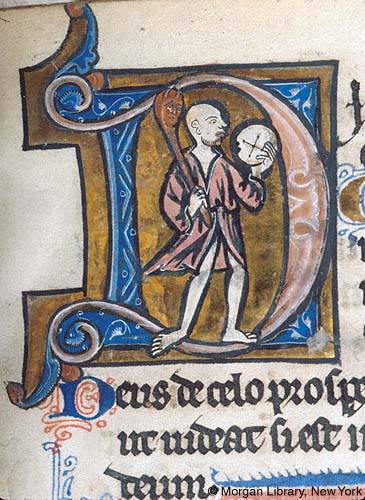 D
Deus de celo prospe
ut uideat si est in
deum
© Morgan Library, New York